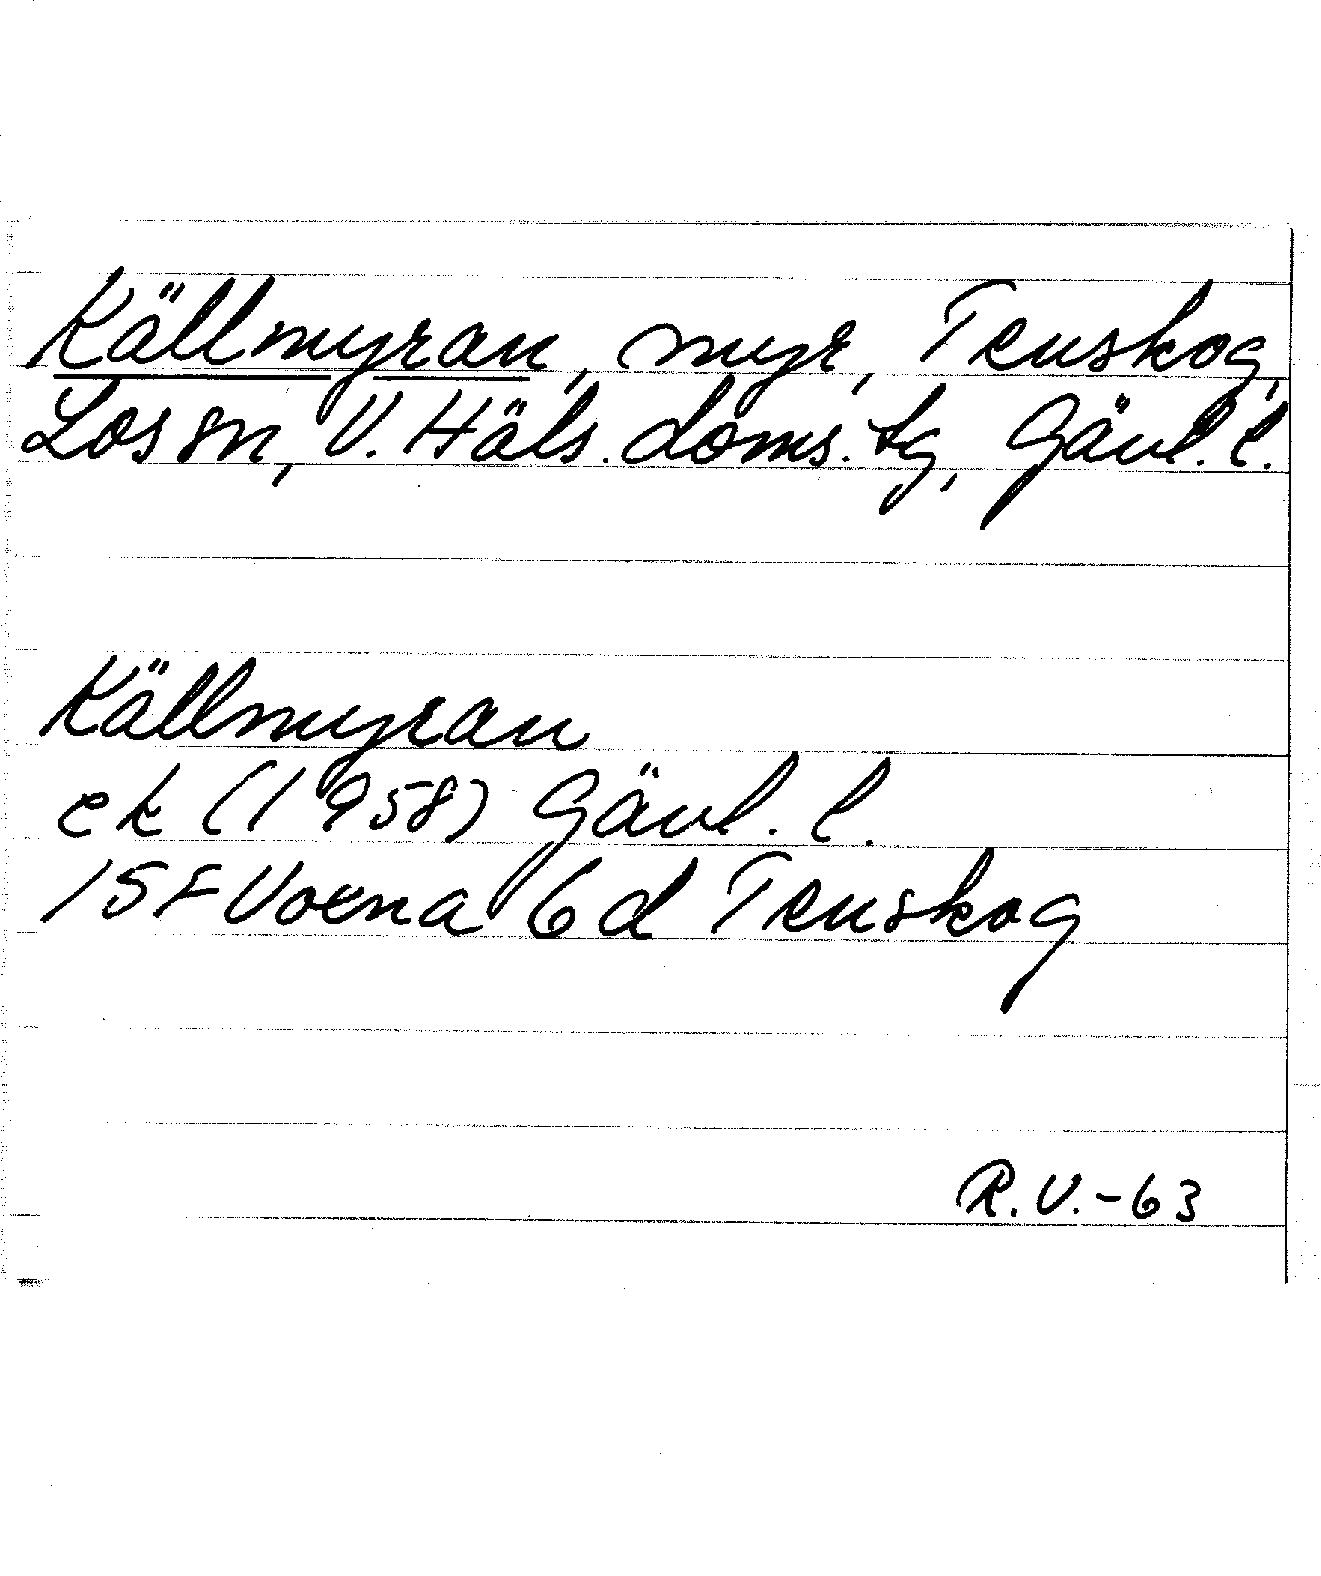 Källmyran, myr, Tenskog,
Los sn, V. Häls. doms. tg, Gävl. l.
Källmyran
ek (1958) Gävl. l.
15F Voxna 6d Tenskog
R.V.-63